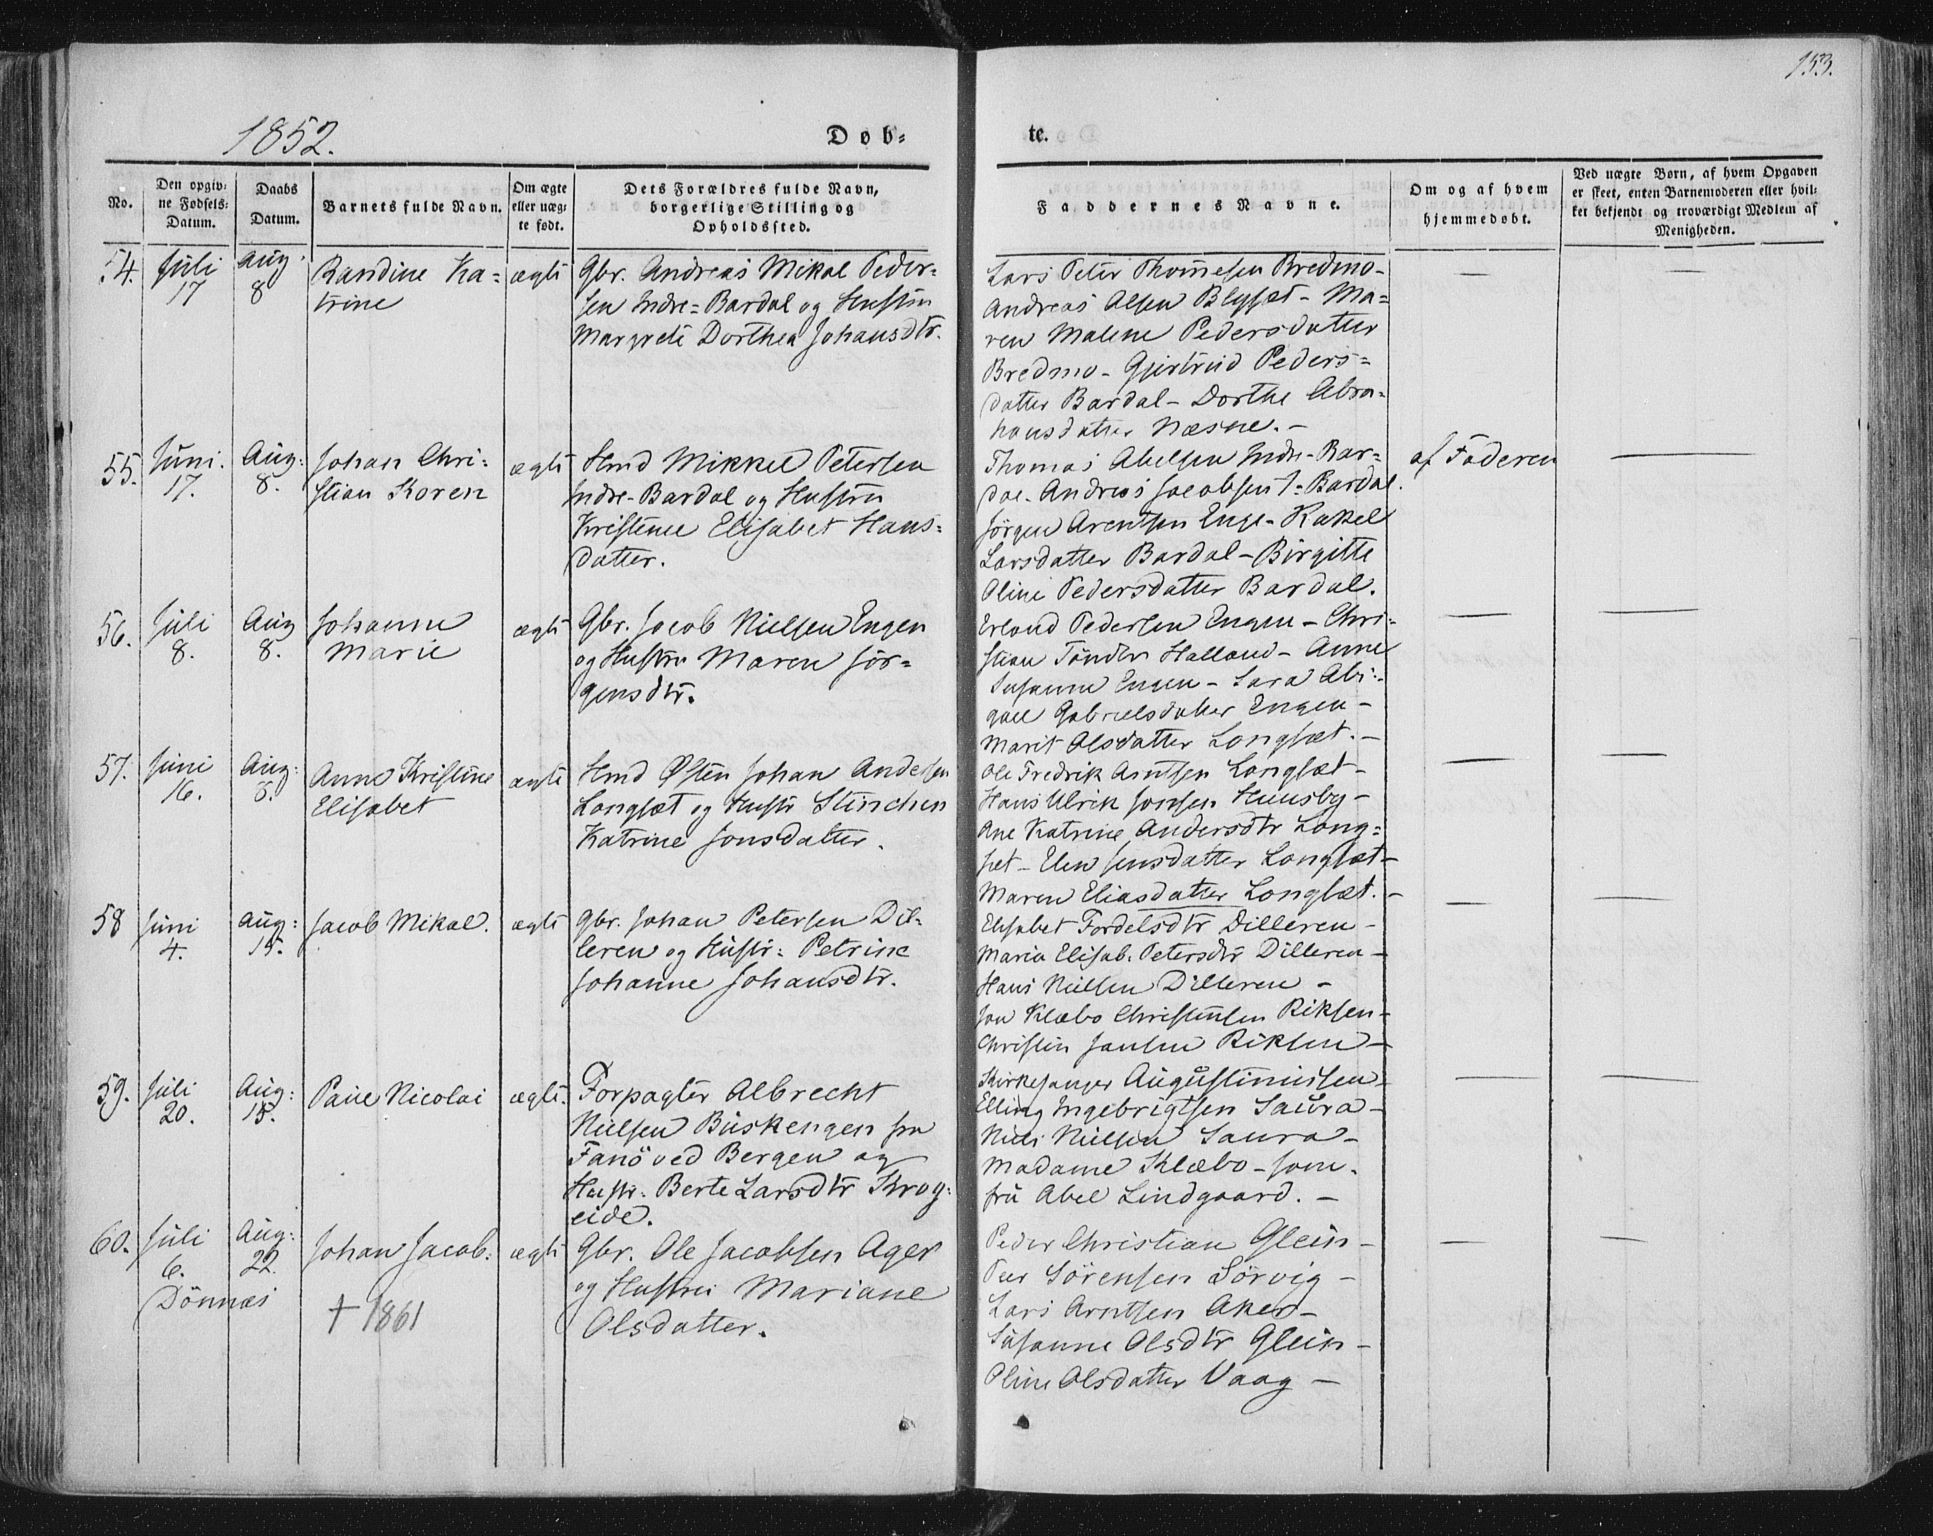 153.
1852.
Døb=
te.
No.
Den opgiv=
ne Fødsels=
Datum.
Daabs
Datum.
Barnets fulde Navn.
Om ægte
eller uæg=
te født.
Dets Forældres fulde Navn,
borgerlige Stilling og
Opholdssted.
Faddernes Navne.
Om og af hvem
hjemmedøbt.
Ved uægte Børn, af hvem Opgaven
er skeet, enten Barnemoderen eller hvil=
ket bekjendt og troværdigt Medlem af
Menigheden.
54.
Juli
17
Aug.
8
Randine Ka=
trine
ægte
Gbr. Andreas Mikal Peder=
sen Indre=Bardal og Hustru
Margrete Dorthea Johansdtr.
Lars Peter Thomesen Bredmo-
Andreas Olsen Blyset - Ma=
ren Malene Pedersdatter
Bredmo - Gjertrud Peders=
datter Bardal - Dorthe Abra=
hamsdatter Næsne. -
55.
Juni.
17.
Aug:
8.
Johan Chri=
stian Koren
ægte
Hmd Mikkel Petersen
Indre-Bardal og Hustru
Kristene Elisabet Hans=
datter.
Thomas Abelsen Indre-Bar=
dal - Andreas Jacobsen I-Bardal.
Jørgen Arentsen Enge - Rakel
Larsdatter Bardal - Birgitte
Oline Pedersdatter Bardal.
af Faderen
56.
Juli
8.
Aug
8.
Johanne
Marie
ægte
Gbr. Jacob Nielsen Engen
og Hustru Maren Jør=
gensdtr.
Erland Pedersen Engen - Chri=
stian Tønder Halland - Anne
Susanne Engen - Sara Abi=
gael Gabrielsdatter Engen -
Marit Olsdatter Langset. -
57.
Juni
16.
Aug:
8.
Anne Kristine
Elisabet
ægte
Hmd Østen Johan Andersen
Langset og Hustr Stinchen
Katrine Jonsdatter.
Ole Fredrik Arntsen Langset -
Hans Ulrik Jonsen Huusby -
Ane Katrine Andersdtr Lang=
set - Elen Jensdatter Langset -
Maren Eliasdatter Langset. -
58
Juni
4.
Aug:
15.
Jacob Mikal.
ægte
Gbr. Johan Petersen Dil=
leren og Hustr: Petrine
Johanne Johansdtr.
Elisabet Fordelsdtr Dilleren -
Maria Elisab. Petersdtr Dilleren -
Hans Nielsen Dilleren -
Jon Klæbo Christensen Riksen -
Christin Jansen Riksen -
59.
Juli
20.
Aug:
15.
Paul Nicolai
ægte.
Forpagter Albrecht
Nielsen Buskengen fra
Fanø ved Bergen og
Hustr. Berte Larsdtr Krog=
eide.
Kirkesanger Augustinussen -
Elling Ingebrigtsen Saura -
Niels Nielsen Saura -
Madame Klæbo - Jom=
fru Abel Lindgaard. -
60.
Juli
6.
Dønnæs
Aug:
22.
Johan Jacob.
† 1861
ægte
Gbr. Ole Jacobsen Ager
og Hustru Mariane
Olsdatter.
Peder Christian Glein -
Peer Sørensen Sørvig -
Lars Arntsen Aker -
Susanne Olsdtr Glein -
Oline Olsdatter Vaag -